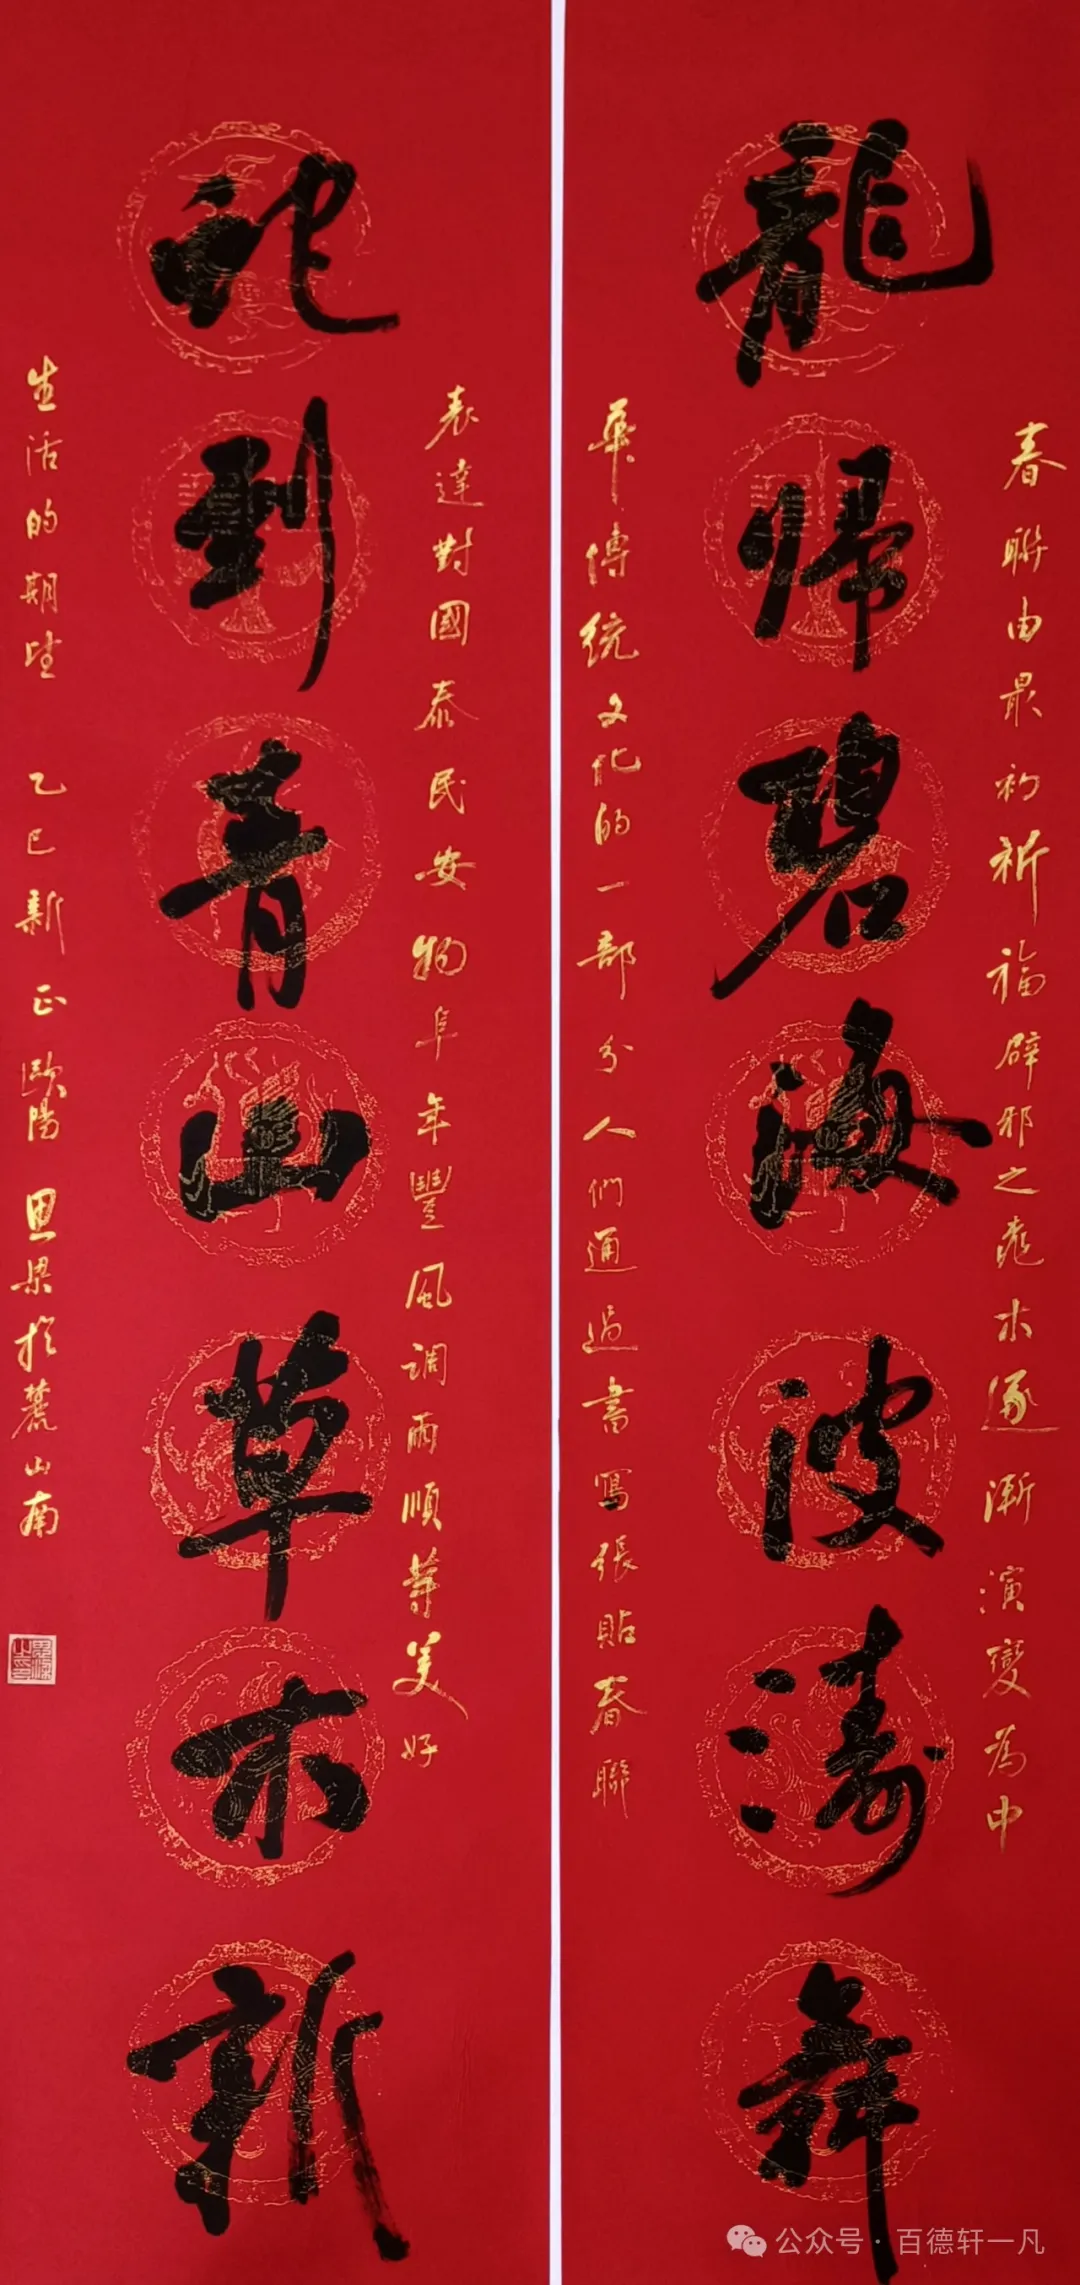 春聯由最初祈福辟邪之桃木逐漸演變為中
龍歸碧海波濤舞
華傳統文化的一部分人們通過書寫張貼春聯
表達對國泰民安物阜年豐風調雨順等美好
蛇到青山草木新
生活的期望 乙巳新正歐陽思梁於麓山南
公众号·百德轩一凡